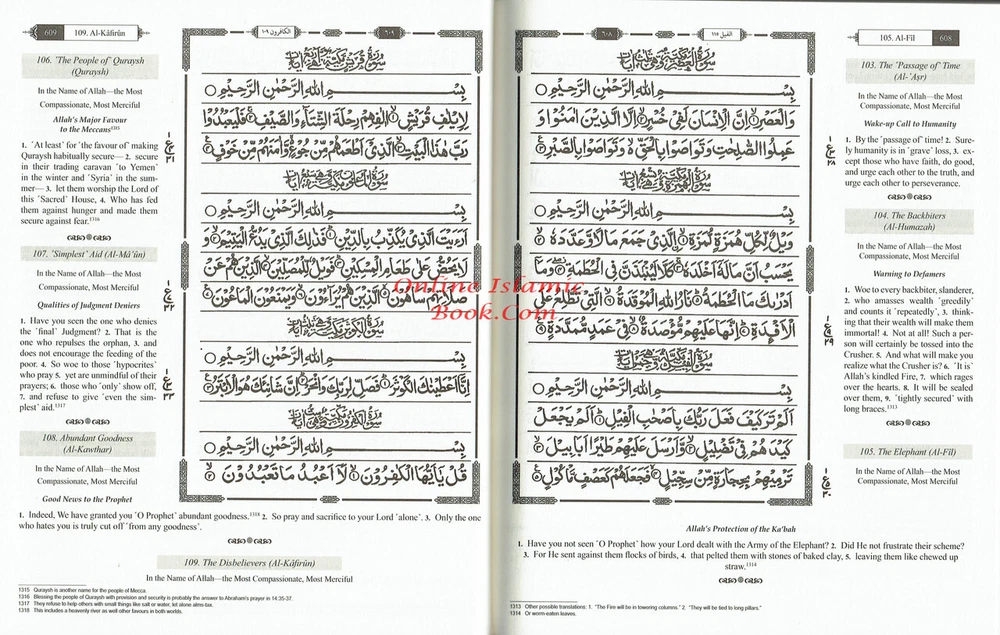 105. Al-Fîl 608
103. The ˹Passage of˺ Time
(Al-'Aṣr)
In the Name of Allah—the Most
Compassionate, Most Merciful
Wake-up Call to Humanity
1. By the ˹passage of˺ time! 2. Sure-
ly humanity is in ˹grave˺ loss, 3. ex-
cept those who have faith, do good,
and urge each other to the truth, and
urge each other to perseverance.
104. The Backbiters
(Al-Humazah)
In the Name of Allah—the Most
Compassionate, Most Merciful
Warning to Defamers
1. Woe to every backbiter, slanderer,
2. who amasses wealth ˹greedily˺
and counts it ˹repeatedly˺, 3. think-
ing that their wealth will make them
immortal! 4. Not at all! Such a per-
son will certainly be tossed into the
Crusher. 5. And what will make you
realize what the Crusher is? 6. ˹It is˺
Allah's kindled Fire, 7. which rages
over the hearts. 8. It will be sealed
over them, 9. ˹tightly secured˺ with
long braces.1313
105. The Elephant (Al-Fîl)
In the Name of Allah—the Most
Compassionate, Most Merciful
الفيل ١٠٥
٦٠٨
بِسْمِ اللهِ الرَّحْمٰنِ الرَّحِيْمِ
وَالْعَصْرِ ۙ١ اِنَّ الْاِنْسَانَ لَفِيْ خُسْرٍ ۙ٢ اِلَّا الَّذِيْنَ اٰمَنُوْا وَ
عَمِلُوا الصّٰلِحٰتِ وَتَوَاصَوْا بِالْحَقِّ ۙ وَتَوَاصَوْا بِالصَّبْرِ ٣
بِسْمِ اللهِ الرَّحْمٰنِ الرَّحِيْمِ
وَيْلٌ لِّكُلِّ هُمَزَةٍ لُّمَزَةٍ ۙ١ الَّذِيْ جَمَعَ مَالًا وَّعَدَّدَهٗ ۙ٢
يَحْسَبُ اَنَّ مَالَهٗٓ اَخْلَدَهٗ ۚ٣ كَلَّا لَيُنْۢبَذَنَّ فِي الْحُطَمَةِ ۖ٤ وَمَآ
اَدْرٰىكَ مَا الْحُطَمَةُ ۗ٥ نَارُ اللهِ الْمُوْقَدَةُ ۙ٦ الَّتِيْ تَطَّلِعُ عَلَى
الْاَفْـِٕدَةِ ۗ٧ اِنَّهَا عَلَيْهِمْ مُّؤْصَدَةٌ ۙ٨ فِيْ عَمَدٍ مُّمَدَّدَةٍ ٩
بِسْمِ اللهِ الرَّحْمٰنِ الرَّحِيْمِ
اَلَمْ تَرَ كَيْفَ فَعَلَ رَبُّكَ بِاَصْحٰبِ الْفِيْلِ ۗ١ اَلَمْ يَجْعَلْ
كَيْدَهُمْ فِيْ تَضْلِيْلٍ ۙ٢ وَّاَرْسَلَ عَلَيْهِمْ طَيْرًا اَبَابِيْلَ ۙ٣
تَرْمِيْهِمْ بِحِجَارَةٍ مِّنْ سِجِّيْلٍ ۙ٤ فَجَعَلَهُمْ كَعَصْفٍ مَّاْكُوْلٍ ٥
Allah's Protection of the Ka'bah
1. Have you not seen ˹O Prophet˺ how your Lord dealt with the Army of the Elephant? 2. Did He not frustrate their scheme?
3. For He sent against them flocks of birds, 4. that pelted them with stones of baked clay, 5. leaving them like chewed up
straw.1314
1313 Other possible translations: 1. "The Fire will be in towering columns." 2. "They will be tied to long pillars."
1314 Or worm-eaten leaves.
609 109. Al-Kâfirûn
106. ˹The People of˺ Quraysh
(Quraysh)
In the Name of Allah—the Most
Compassionate, Most Merciful
Allah's Major Favour
to the Meccans1315
1. ˹At least˺ for ˹the favour of˺ making
Quraysh habitually secure— 2. secure
in their trading caravan ˹to Yemen˺
in the winter and ˹Syria˺ in the sum-
mer— 3. let them worship the Lord of
this ˹Sacred˺ House, 4. Who has fed
them against hunger and made them
secure against fear.1316
107. ˹Simplest˺ Aid (Al-Mâ'ûn)
In the Name of Allah—the Most
Compassionate, Most Merciful
Qualities of Judgment Deniers
1. Have you seen the one who denies
the ˹final˺ Judgment? 2. That is the
one who repulses the orphan, 3. and
does not encourage the feeding of the
poor. 4. So woe to those ˹hypocrites˺
who pray 5. yet are unmindful of their
prayers; 6. those who ˹only˺ show off,
7. and refuse to give ˹even the sim-
plest˺ aid.1317
108. Abundant Goodness
(Al-Kawthar)
In the Name of Allah—the Most
Compassionate, Most Merciful
Good News to the Prophet
الكافرون ١٠٩
٦٠٩
بِسْمِ اللهِ الرَّحْمٰنِ الرَّحِيْمِ
لِاِيْلٰفِ قُرَيْشٍ ۙ١ اٖلٰفِهِمْ رِحْلَةَ الشِّتَآءِ وَالصَّيْفِ ۚ٢ فَلْيَعْبُدُوْا
رَبَّ هٰذَا الْبَيْتِ ۙ٣ الَّذِيْٓ اَطْعَمَهُمْ مِّنْ جُوْعٍ ۙ وَّاٰمَنَهُمْ مِّنْ خَوْفٍ ٤
بِسْمِ اللهِ الرَّحْمٰنِ الرَّحِيْمِ
اَرَءَيْتَ الَّذِيْ يُكَذِّبُ بِالدِّيْنِ ۗ١ فَذٰلِكَ الَّذِيْ يَدُعُّ الْيَتِيْمَ ۙ٢ وَ
لَا يَحُضُّ عَلٰى طَعَامِ الْمِسْكِيْنِ ۗ٣ فَوَيْلٌ لِّلْمُصَلِّيْنَ ۙ٤ الَّذِيْنَ هُمْ عَنْ
صَلَاتِهِمْ سَاهُوْنَ ۙ٥ الَّذِيْنَ هُمْ يُرَآءُوْنَ ۙ٦ وَيَمْنَعُوْنَ الْمَاعُوْنَ ٧
بِسْمِ اللهِ الرَّحْمٰنِ الرَّحِيْمِ
اِنَّآ اَعْطَيْنٰكَ الْكَوْثَرَ ۗ١ فَصَلِّ لِرَبِّكَ وَانْحَرْ ۗ٢ اِنَّ شَانِئَكَ هُوَ الْاَبْتَرُ ٣
بِسْمِ اللهِ الرَّحْمٰنِ الرَّحِيْمِ
قُلْ يٰٓاَيُّهَا الْكٰفِرُوْنَ ۙ١ لَآ اَعْبُدُ مَا تَعْبُدُوْنَ ۙ٢
1. Indeed, We have granted you ˹O Prophet˺ abundant goodness.1318 2. So pray and sacrifice to your Lord ˹alone˺. 3. Only the one
who hates you is truly cut off ˹from any goodness˺.
109. The Disbelievers (Al-Kâfirûn)
In the Name of Allah—the Most Compassionate, Most Merciful
1315 Quraysh is another name for the people of Mecca.
1316 Blessing the people of Quraysh with provision and security is probably the answer to Abraham's prayer in 14:35-37.
1317 They refuse to help others with small things like salt or water, let alone alms-tax.
1318 This includes a heavenly river as well other favours in both worlds.
Online Islamic
Book.Com